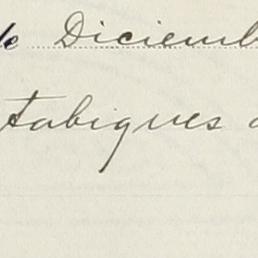 de Diciemb
tabiques